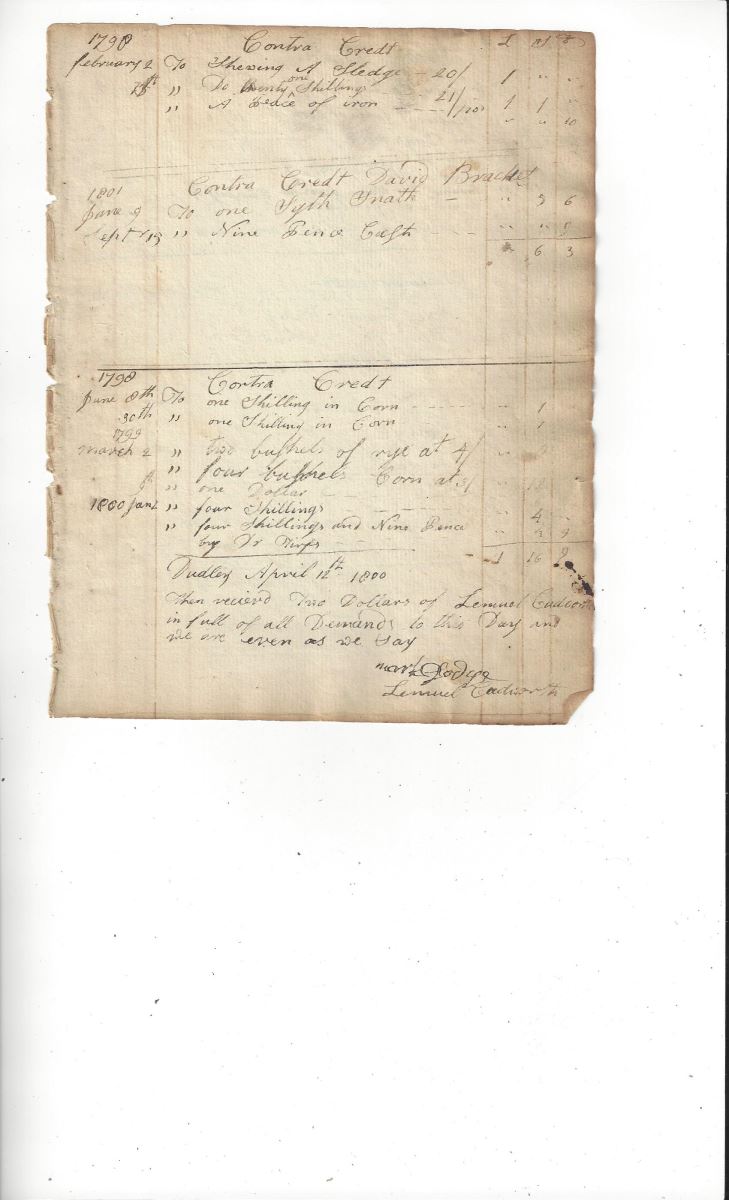 1798 Contra Credt £ s d
february 2 To Shewing A Sledge - 20/ 1 " "
" Do twenty one Shillings 21/ 1 1 "
" A Peace of iron /10d " " 10
1801 Contra Credt David Bracket
June 9 To one Syth Snath - " 5 6
Sept 15 " Nine Pence Cash - - " " 9
" 6 3
1798 Contra Credt
June 8th To one Shilling in Corn - - - - " 1
30th " one Shilling in Corn - - - " 1
1799
march 2 " two bushels of rye at 4/ "
" four bushels Corn at 3/ " 12 -
" one Dollar
1800 Jan " four Shillings - - " 4 -
" four Shillings and Nine Pence
by Dr
1 16 9
Dudley April 12th 1800
Then recievd Two Dollars of Lemuel Cudworth
in full of all Demands to this Day and
we are even as we Say
mark Dodge
Lemuel Cudworth